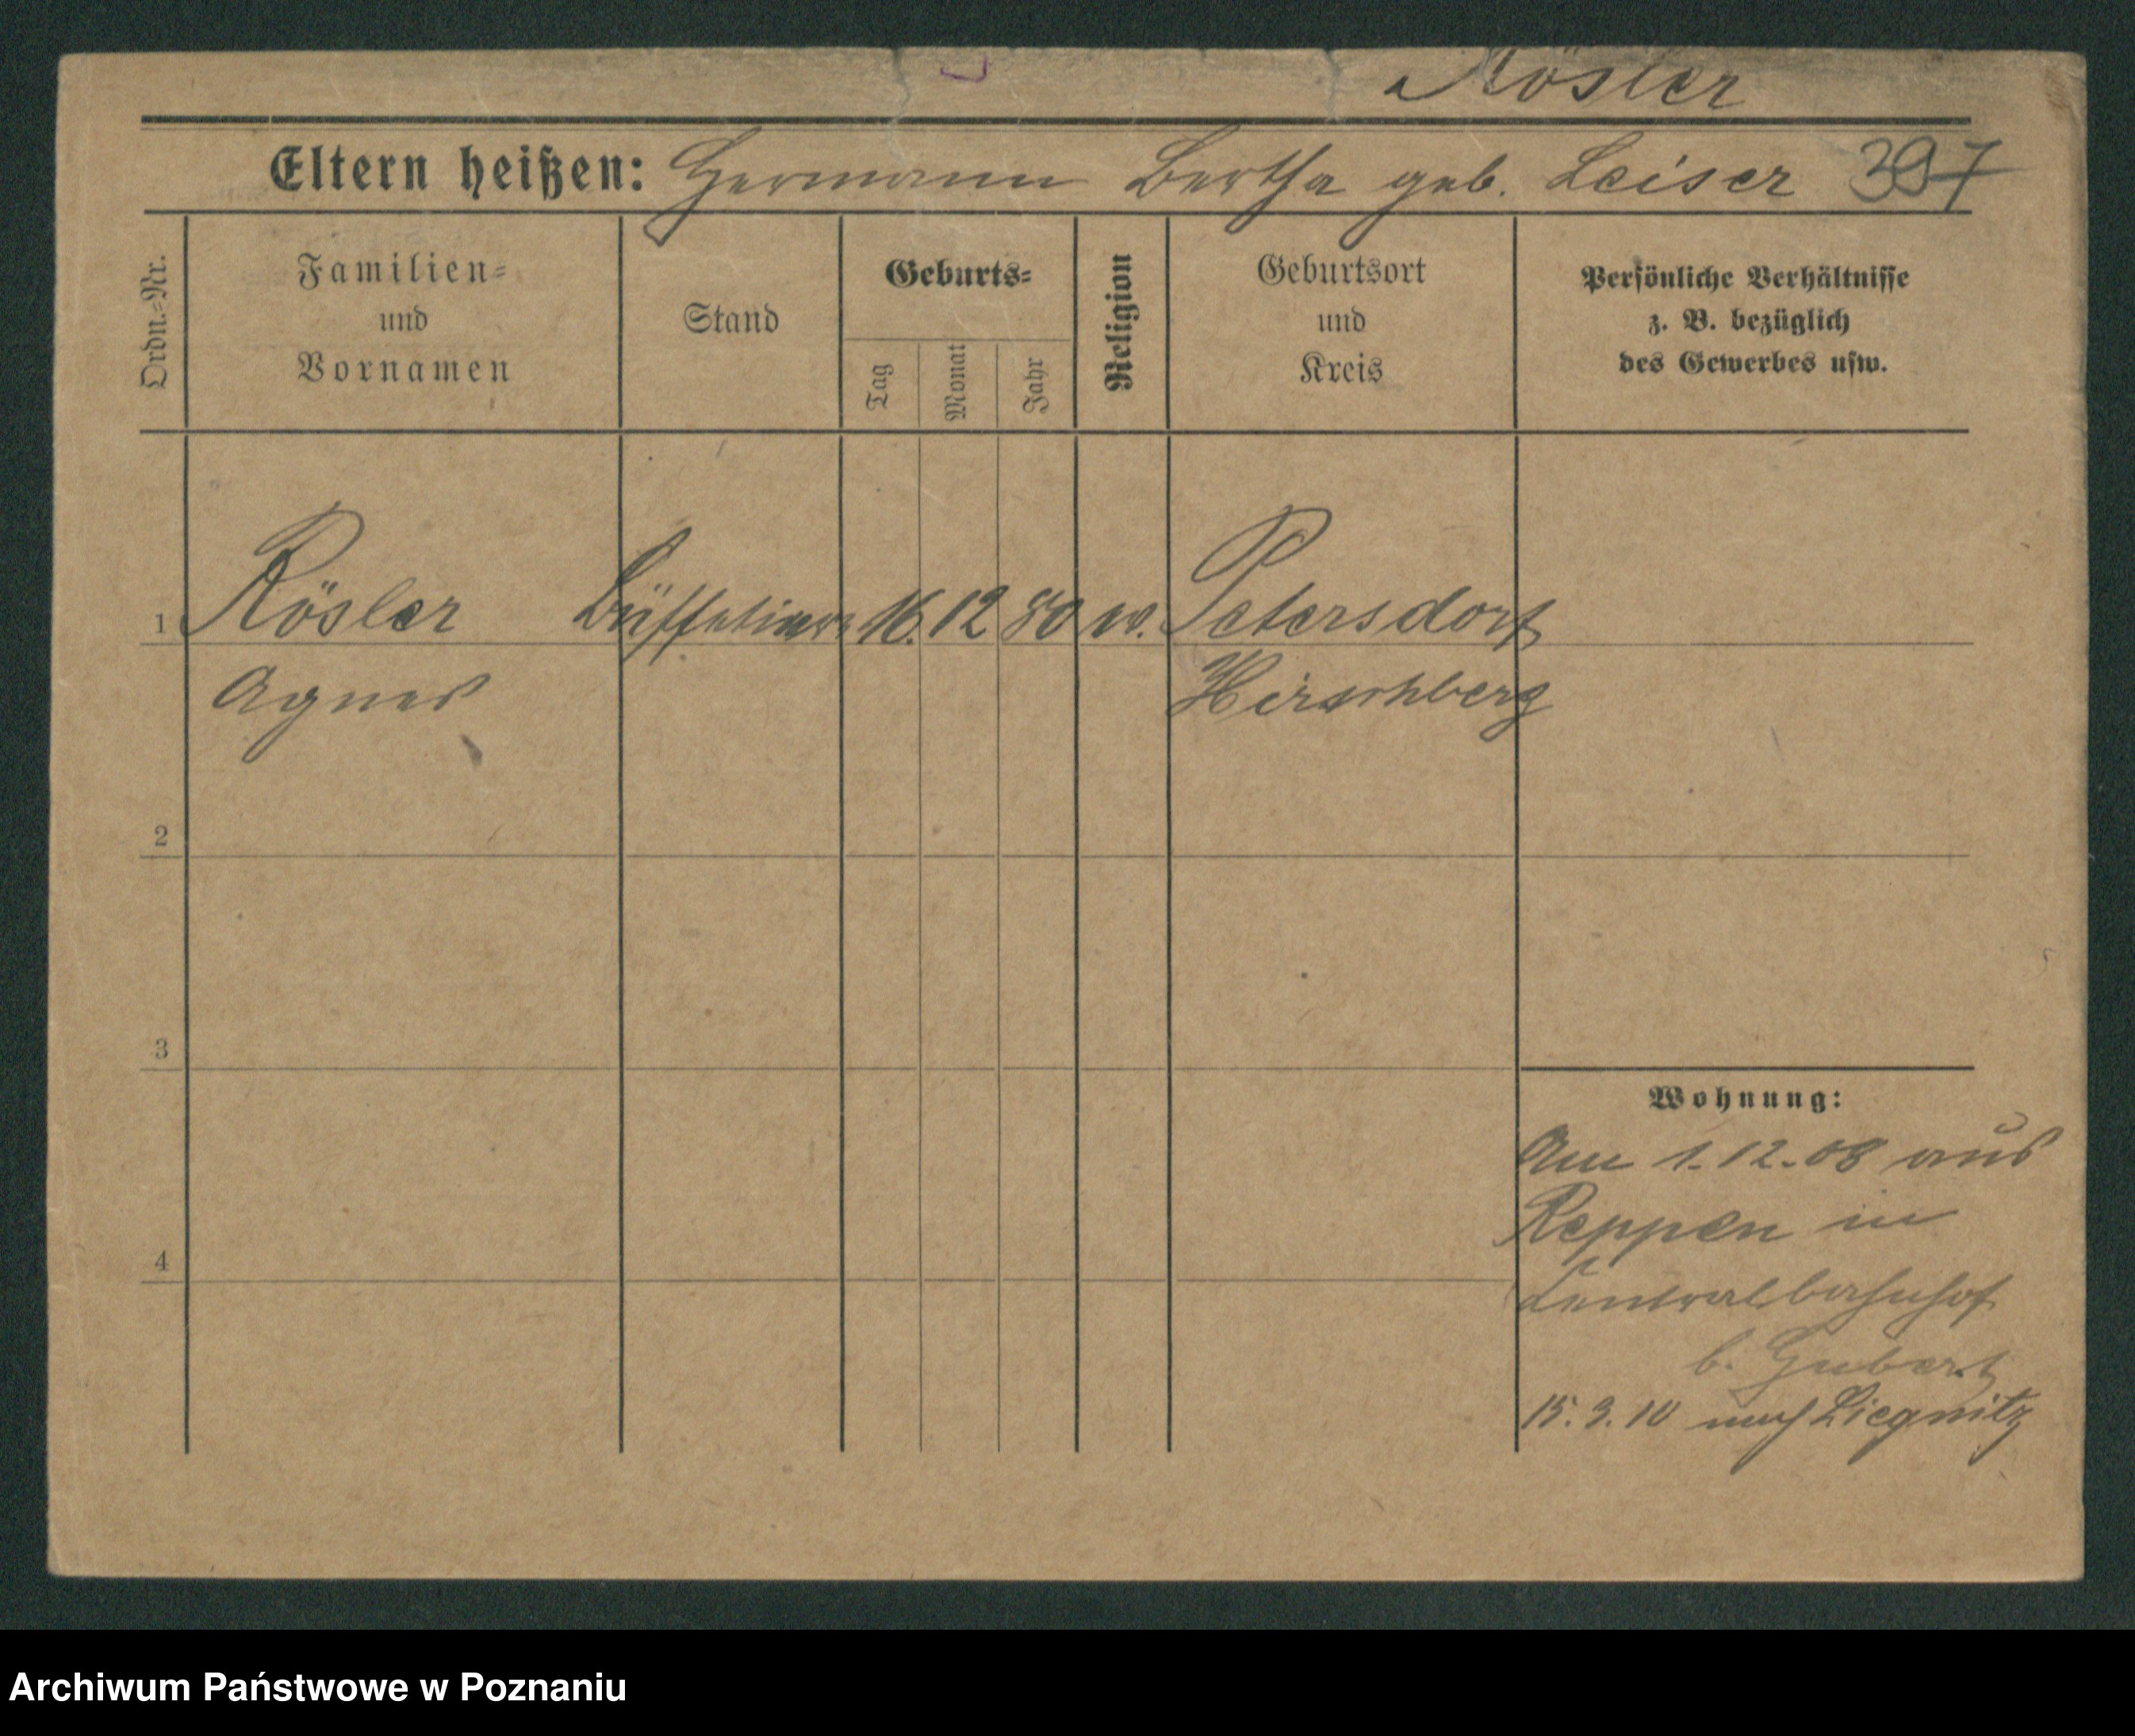 Rösler
Eltern heißen: Hermann Bertha geb. Leiser 397
Ordn.=Nr.
Familien=
und
Vornamen
Stand
Geburts=
Tag
Monat
Jahr
Religion
Geburtsort
und
Kreis
Persönliche Verhältnisse
z. B. bezüglich
des Gewerbes usw.
1 Rösler 16. 12 80 Petersdorf
Agnes Hirschberg
2
3
4
Wohnung:
Am 1.12.08 aus
Reppen in
Centralbahnhof
b. Gubert
15.3.10 nach Liegnitz
Archiwum Państwowe w Poznaniu